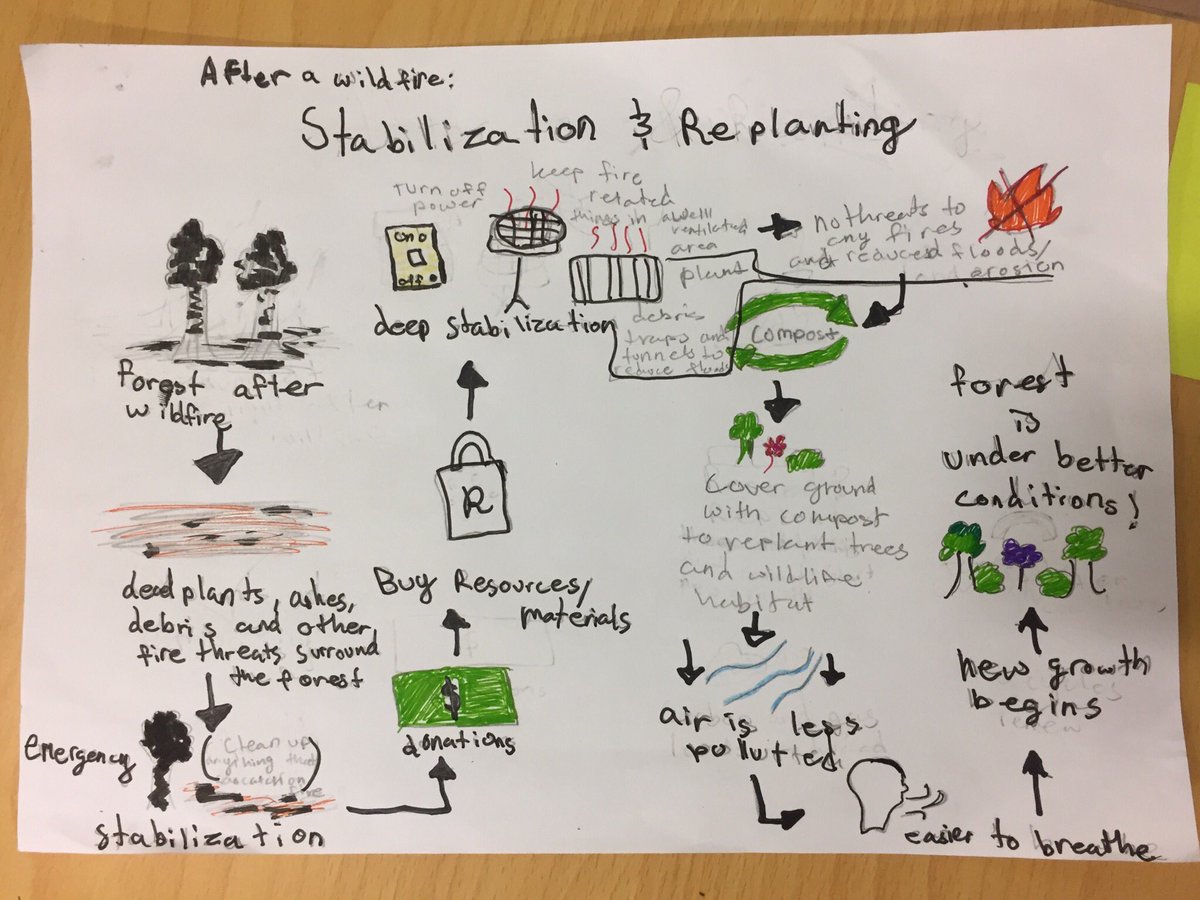 After a wildfire:
Stabilization & Replanting
forest after
wildfire
dead plants, ashes,
debris and other
fire threats surround
the forest
emergency
(clean up
anything that
fire)
stabilization
donations
$
Buy Resources/
materials
R
deep stabilization
Turn off
power
on
off
keep fire
related
things in a well
ventilated
area
plant
debris
traps and
tunnels to
reduce floods
no threats to
any fires
and reduced floods/
erosion
compost
Cover ground
with compost
to replant trees
and wildlife
habitat
air is less
polluted
easier to breathe
new growth
begins
forest
is
under better
conditions!